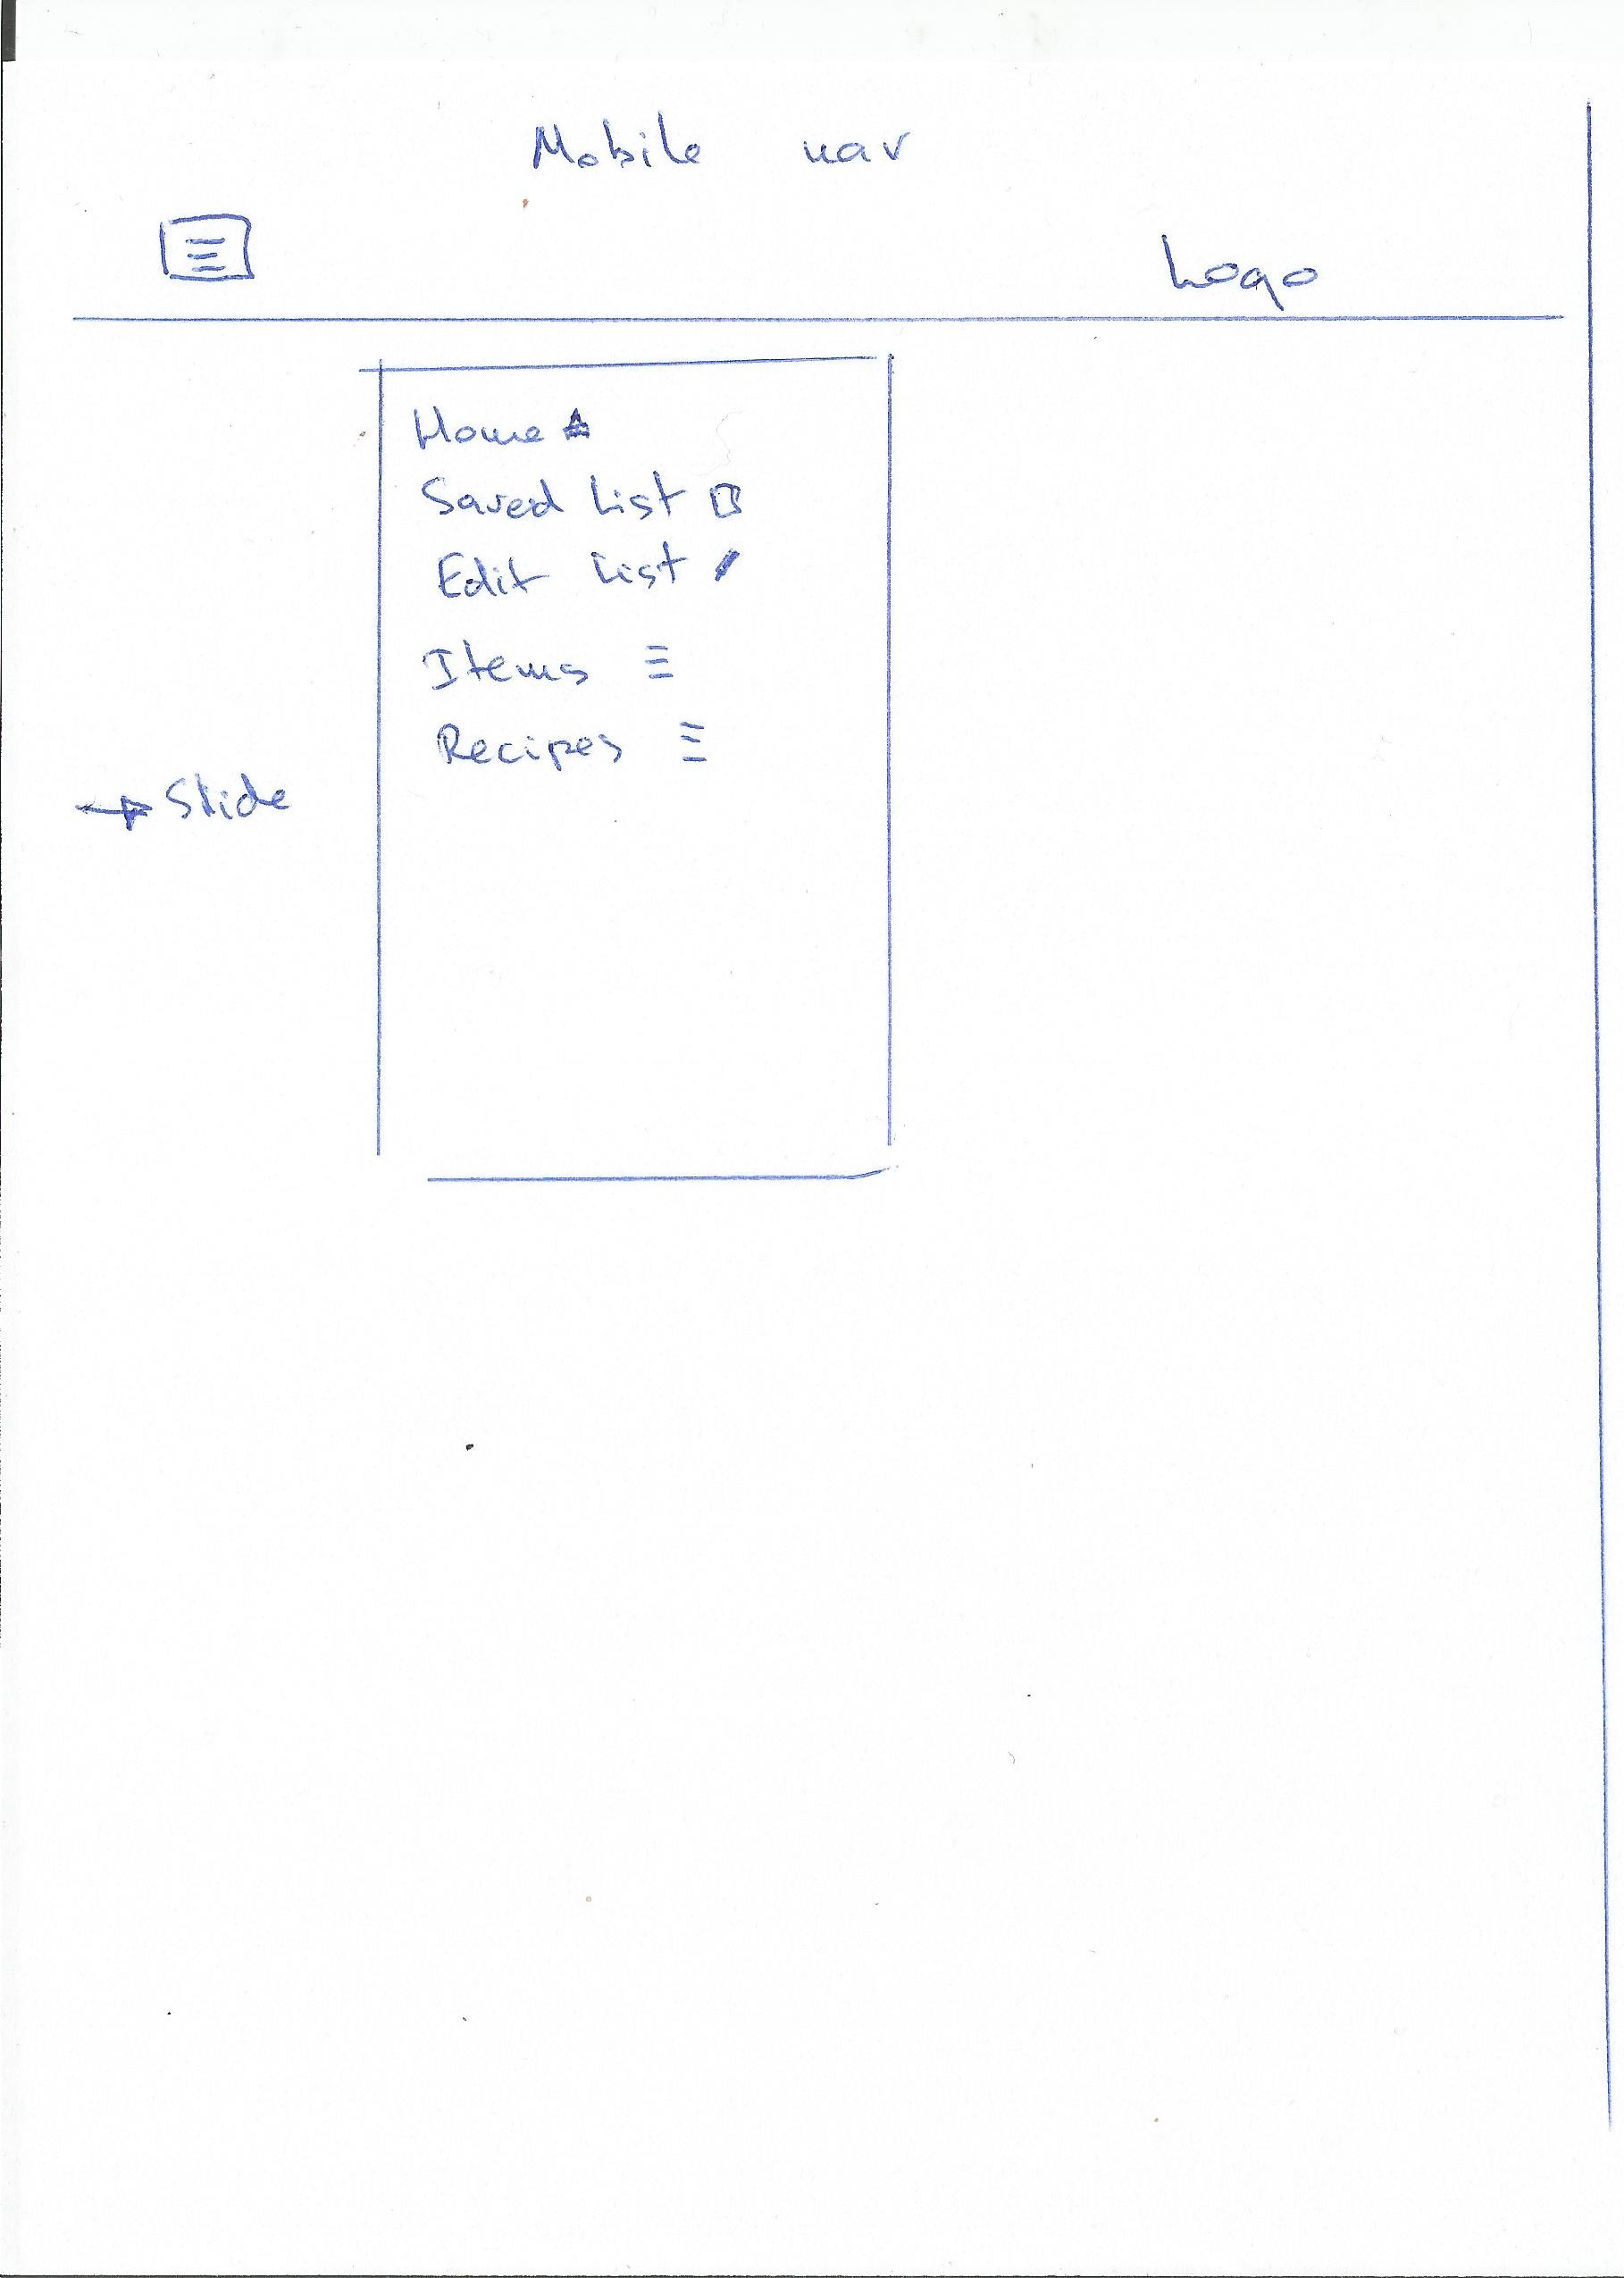 Mobile nav
Logo
Home
Saved List
Edit List
Items
Recipes
Slide